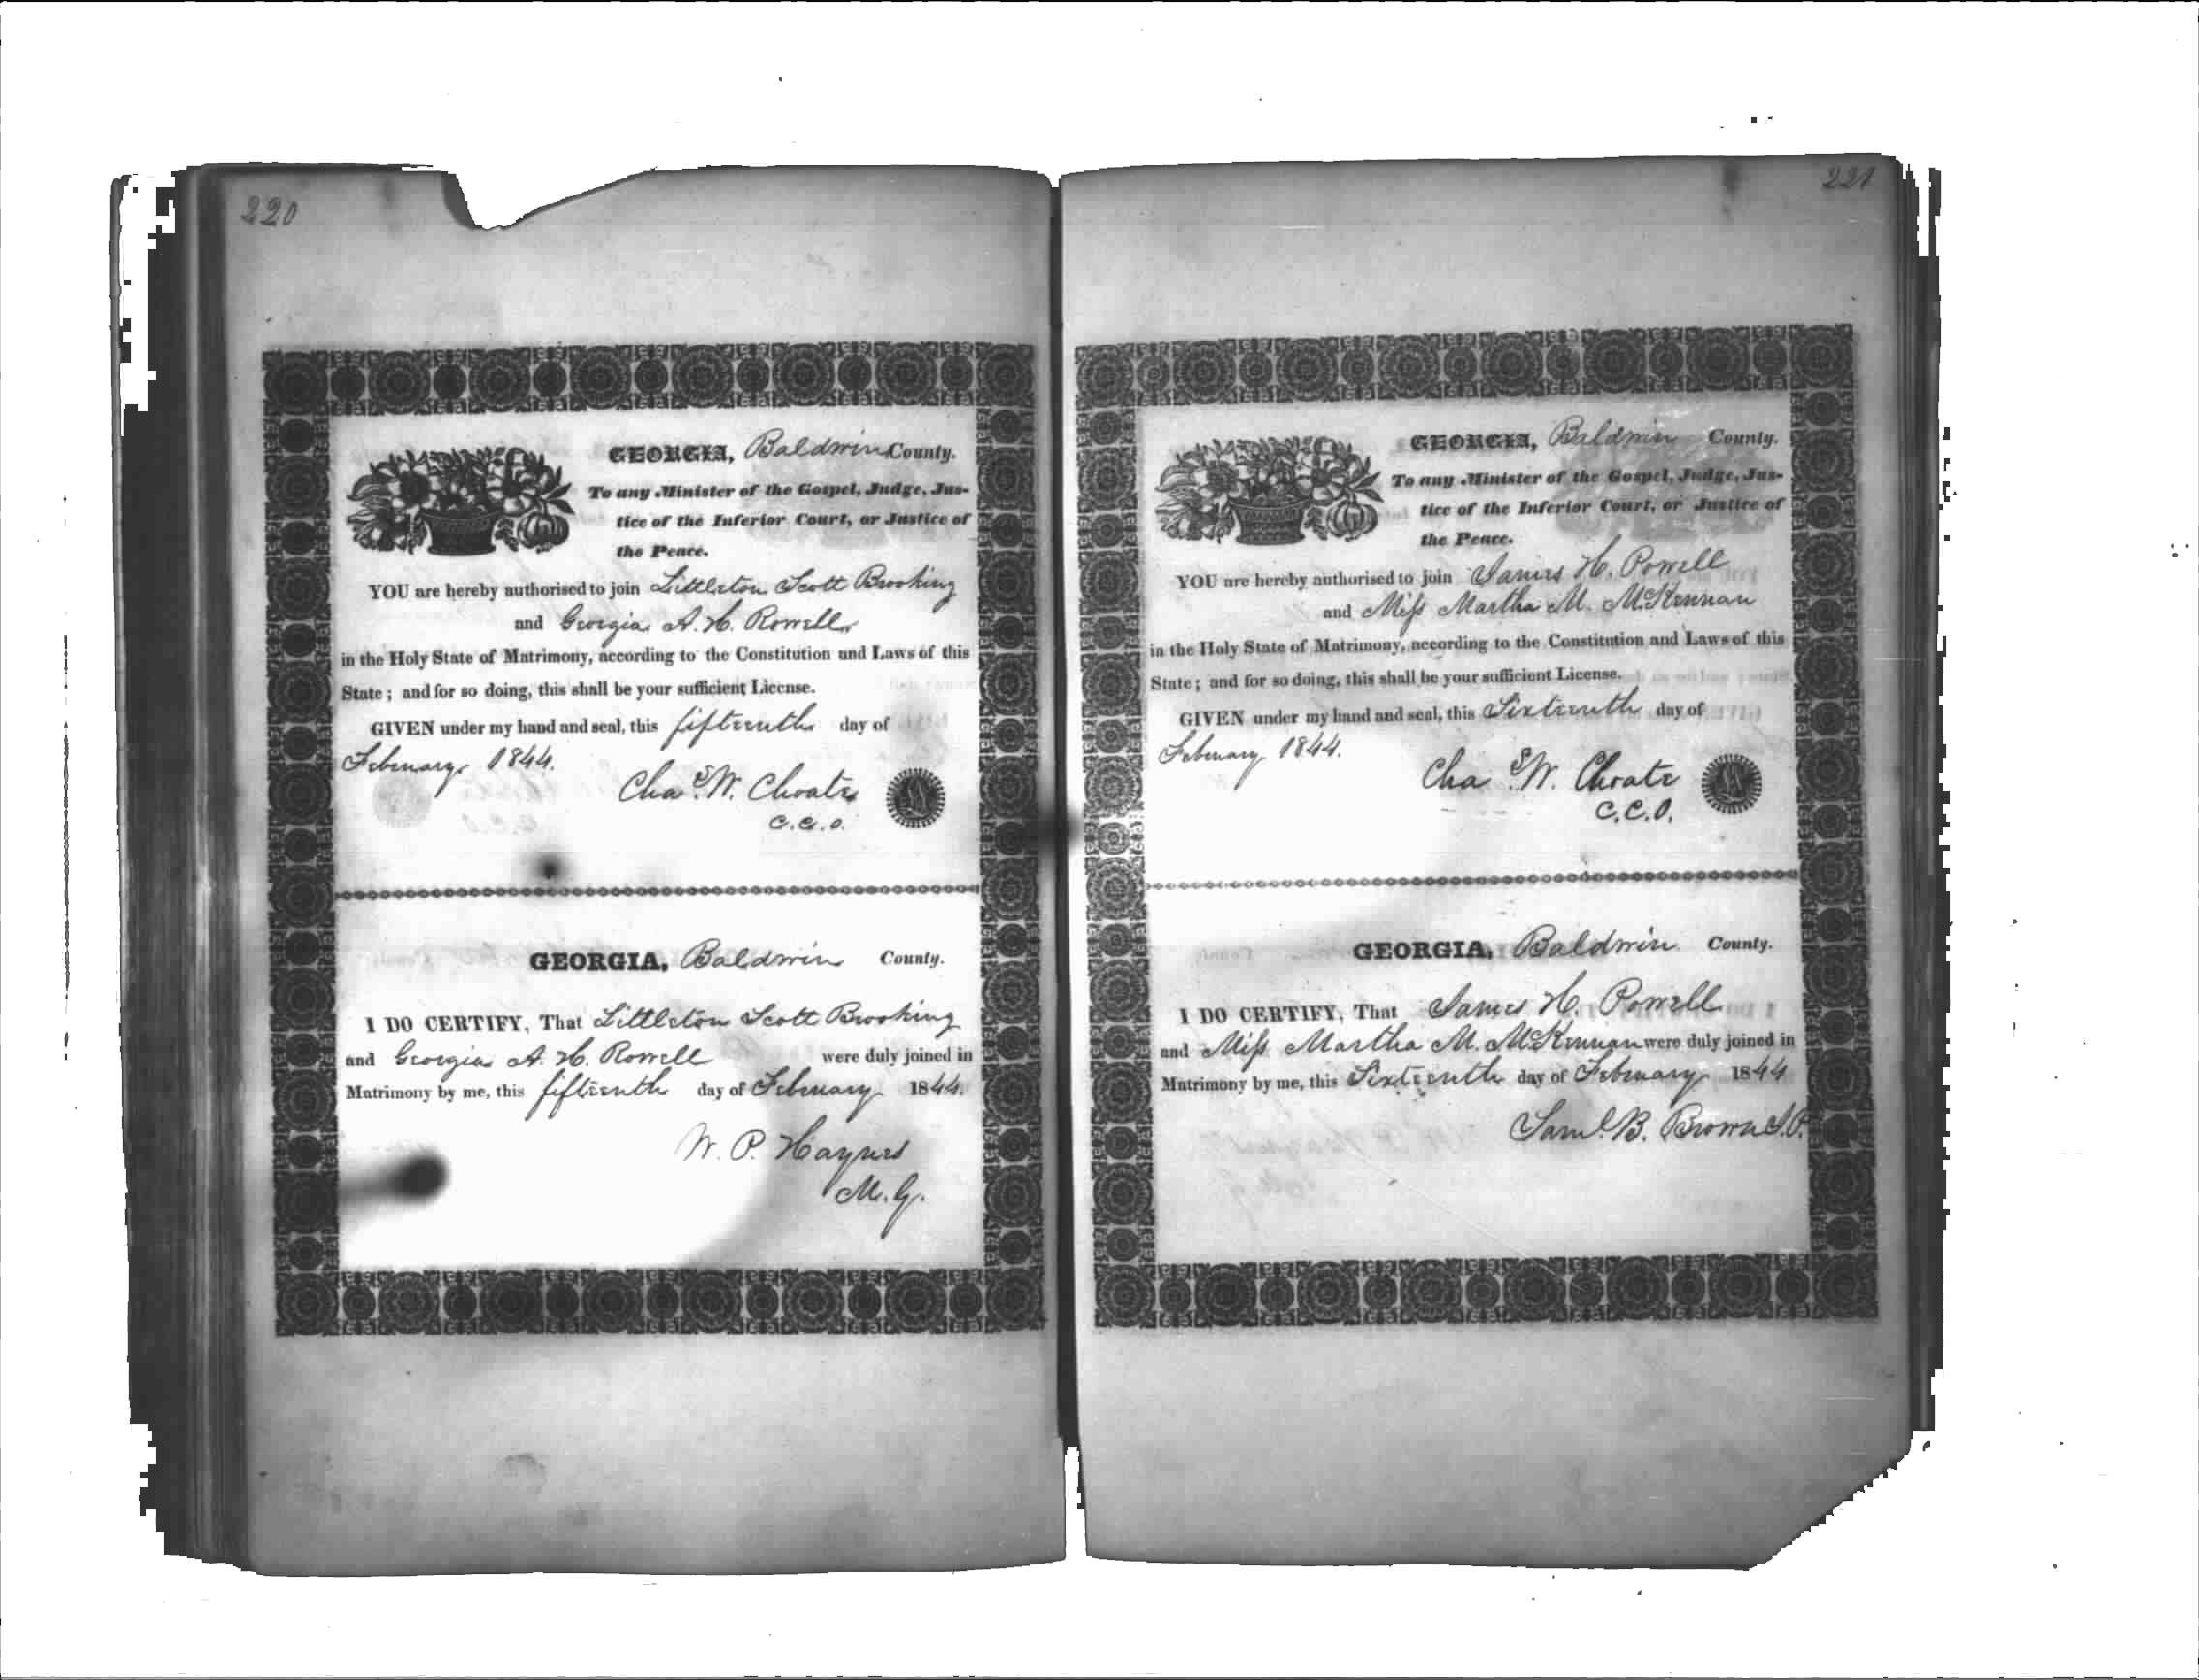 220
GEORGIA, Baldwin County.
To any Minister of the Gospel, Judge, Jus-
tice of the Inferior Court, or Justice of
the Peace.
YOU are hereby authorised to join Littleton Scott Brooking
and Georgia A. H. Rowell
in the Holy State of Matrimony, according to the Constitution and Laws of this
State; and for so doing, this shall be your sufficient License.
GIVEN under my hand and seal, this fifteenth day of
February 1844.
Chas. W. Choate
C.C.O.
GEORGIA, Baldwin County.
I DO CERTIFY, That Littleton Scott Brooking
and Georgia A. H. Rowell were duly joined in
Matrimony by me, this fifteenth day of February 1844.
W. P. Haynes
M.G.
221
GEORGIA, Baldwin County.
To any Minister of the Gospel, Judge, Jus-
tice of the Inferior Court, or Justice of
the Peace.
YOU are hereby authorised to join James H. Powell
and Miss Martha M. McKennan
in the Holy State of Matrimony, according to the Constitution and Laws of this
State; and for so doing, this shall be your sufficient License.
GIVEN under my hand and seal, this Sixteenth day of
February 1844.
Chas. W. Choate
C.C.O.
GEORGIA, Baldwin County.
I DO CERTIFY, That James H. Powell
and Miss Martha M. McKennan were duly joined in
Matrimony by me, this Sixteenth day of February 1844
Saml. B. Brown J.P.